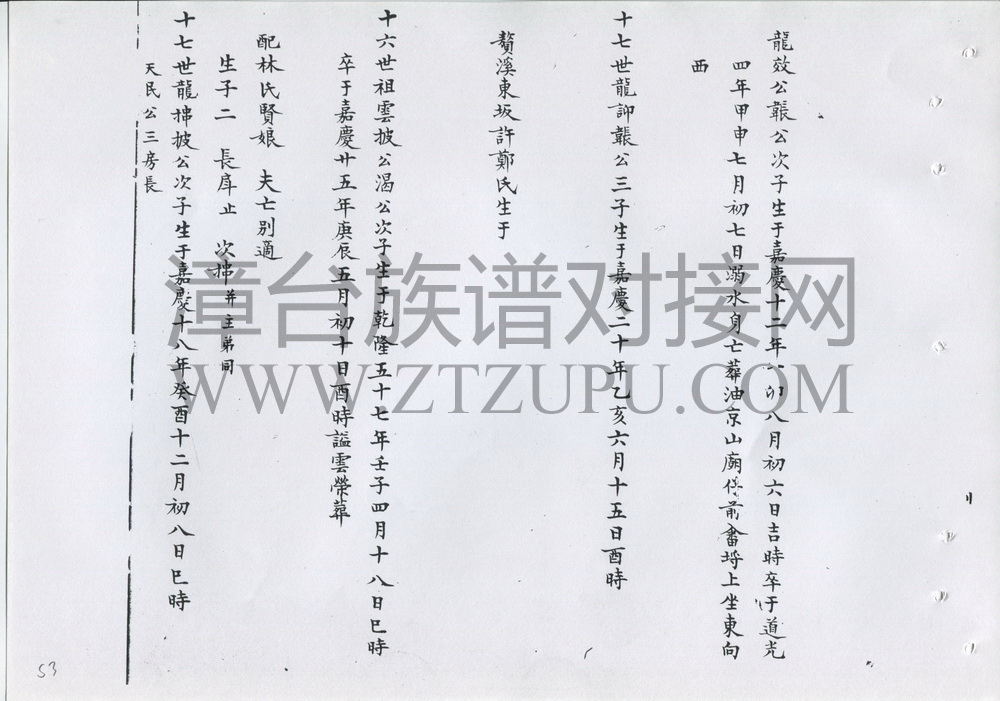 龍效公䶴公次子生于嘉慶十二年卯八月初六日吉時卒于道光
四年甲申七月初七日溺水身亡葬油京山廟後前畬埓上坐東向
西
十七世龍卹公三子生于嘉慶二十年乙亥六月十五日酉時
贅溪東坂許鄭氏生于
十六世祖雲披公渴公次子生于乾隆五十七年壬子四月十八日巳時
卒于嘉慶廿五年庚辰五月初十日酉時謚雲榮葬
配林氏賢娘 夫亡別適
生子二 長庠止 次捑 并主弟同
十七世龍捑披公次子生于嘉慶十八年癸酉十二月初八日巳時
天民公三房長
53
漳台族谱对接网
WWW.ZTZUPU.COM